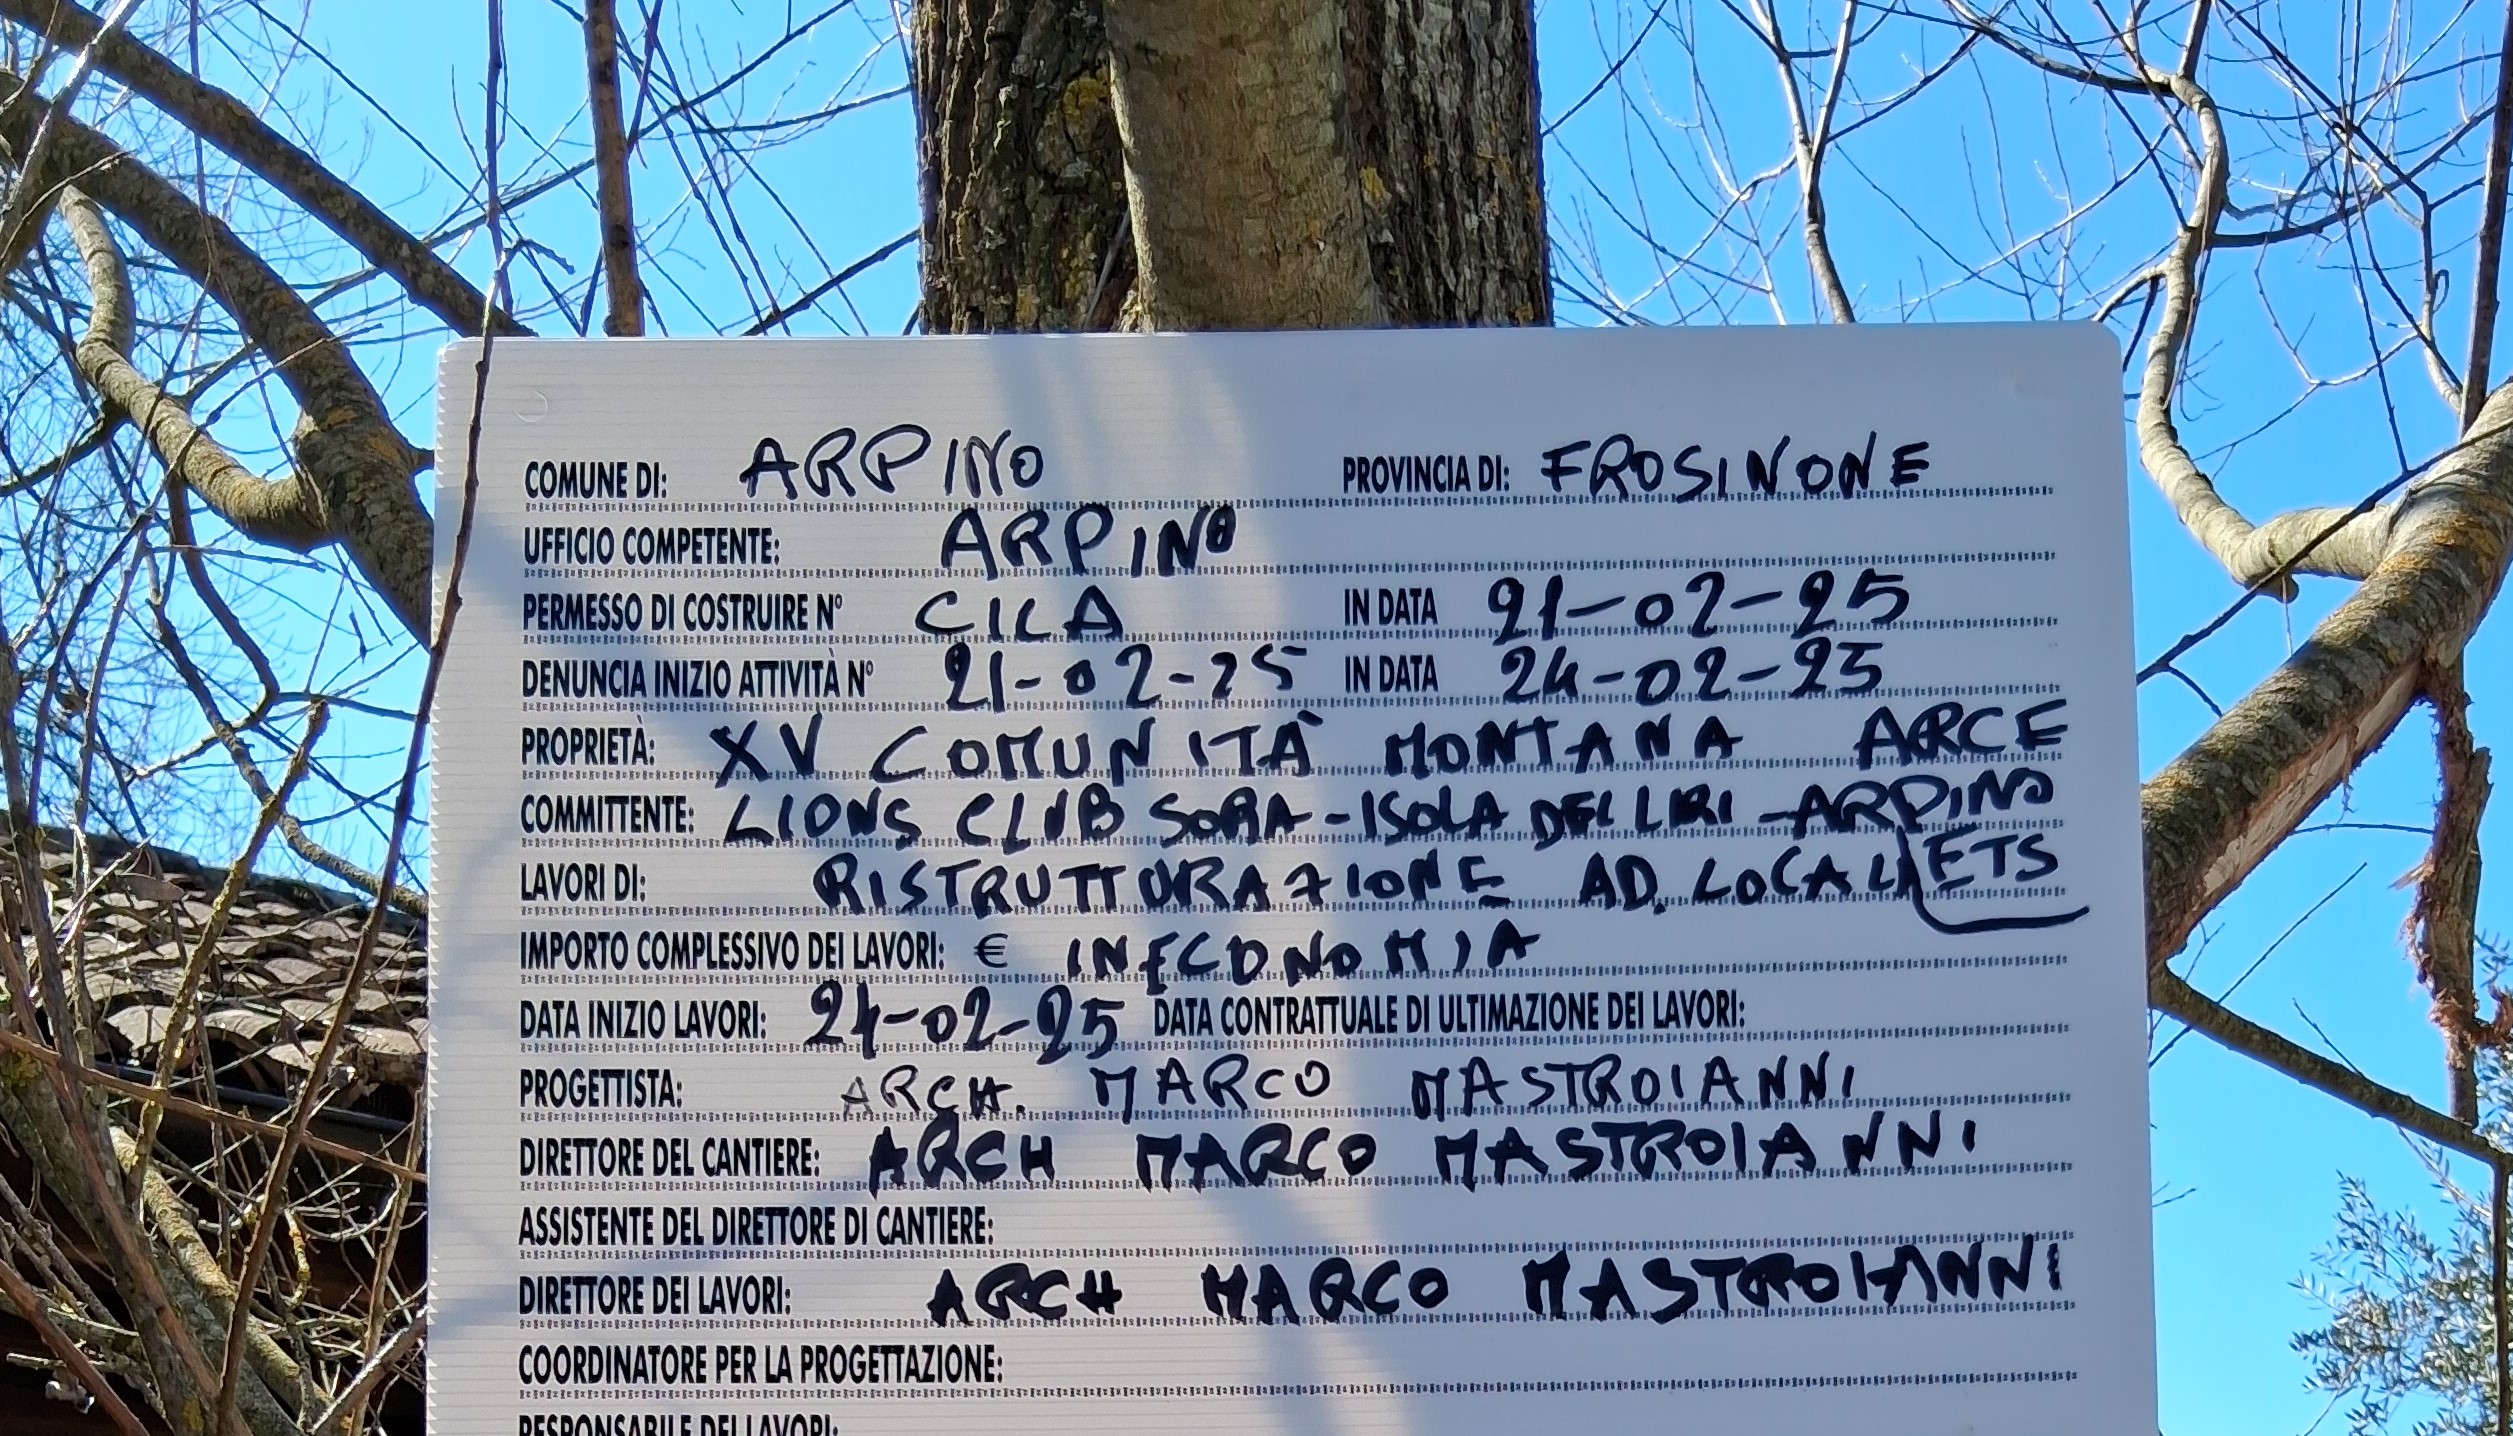 COMUNE DI: ARPINO PROVINCIA DI: FROSINONE
UFFICIO COMPETENTE: ARPINO
PERMESSO DI COSTRUIRE N° CILA IN DATA 21-02-25
DENUNCIA INIZIO ATTIVITÀ N° 21-02-25 IN DATA 24-02-25
PROPRIETÀ: XV COMUNITÀ MONTANA ARCE
COMMITTENTE: LIONS CLUB SORA-ISOLA DEL LIRI-ARPINO
LAVORI DI: RISTRUTTURAZIONE AD. LOCALI ETS
IMPORTO COMPLESSIVO DEI LAVORI: € IN ECONOMIA
DATA INIZIO LAVORI: 24-02-25 DATA CONTRATTUALE DI ULTIMAZIONE DEI LAVORI:
PROGETTISTA: ARCH. MARCO MASTROIANNI
DIRETTORE DEL CANTIERE: ARCH MARCO MASTROIANNI
ASSISTENTE DEL DIRETTORE DI CANTIERE:
DIRETTORE DEI LAVORI: ARCH MARCO MASTROIANNI
COORDINATORE PER LA PROGETTAZIONE:
RESPONSABILE DEI LAVORI: